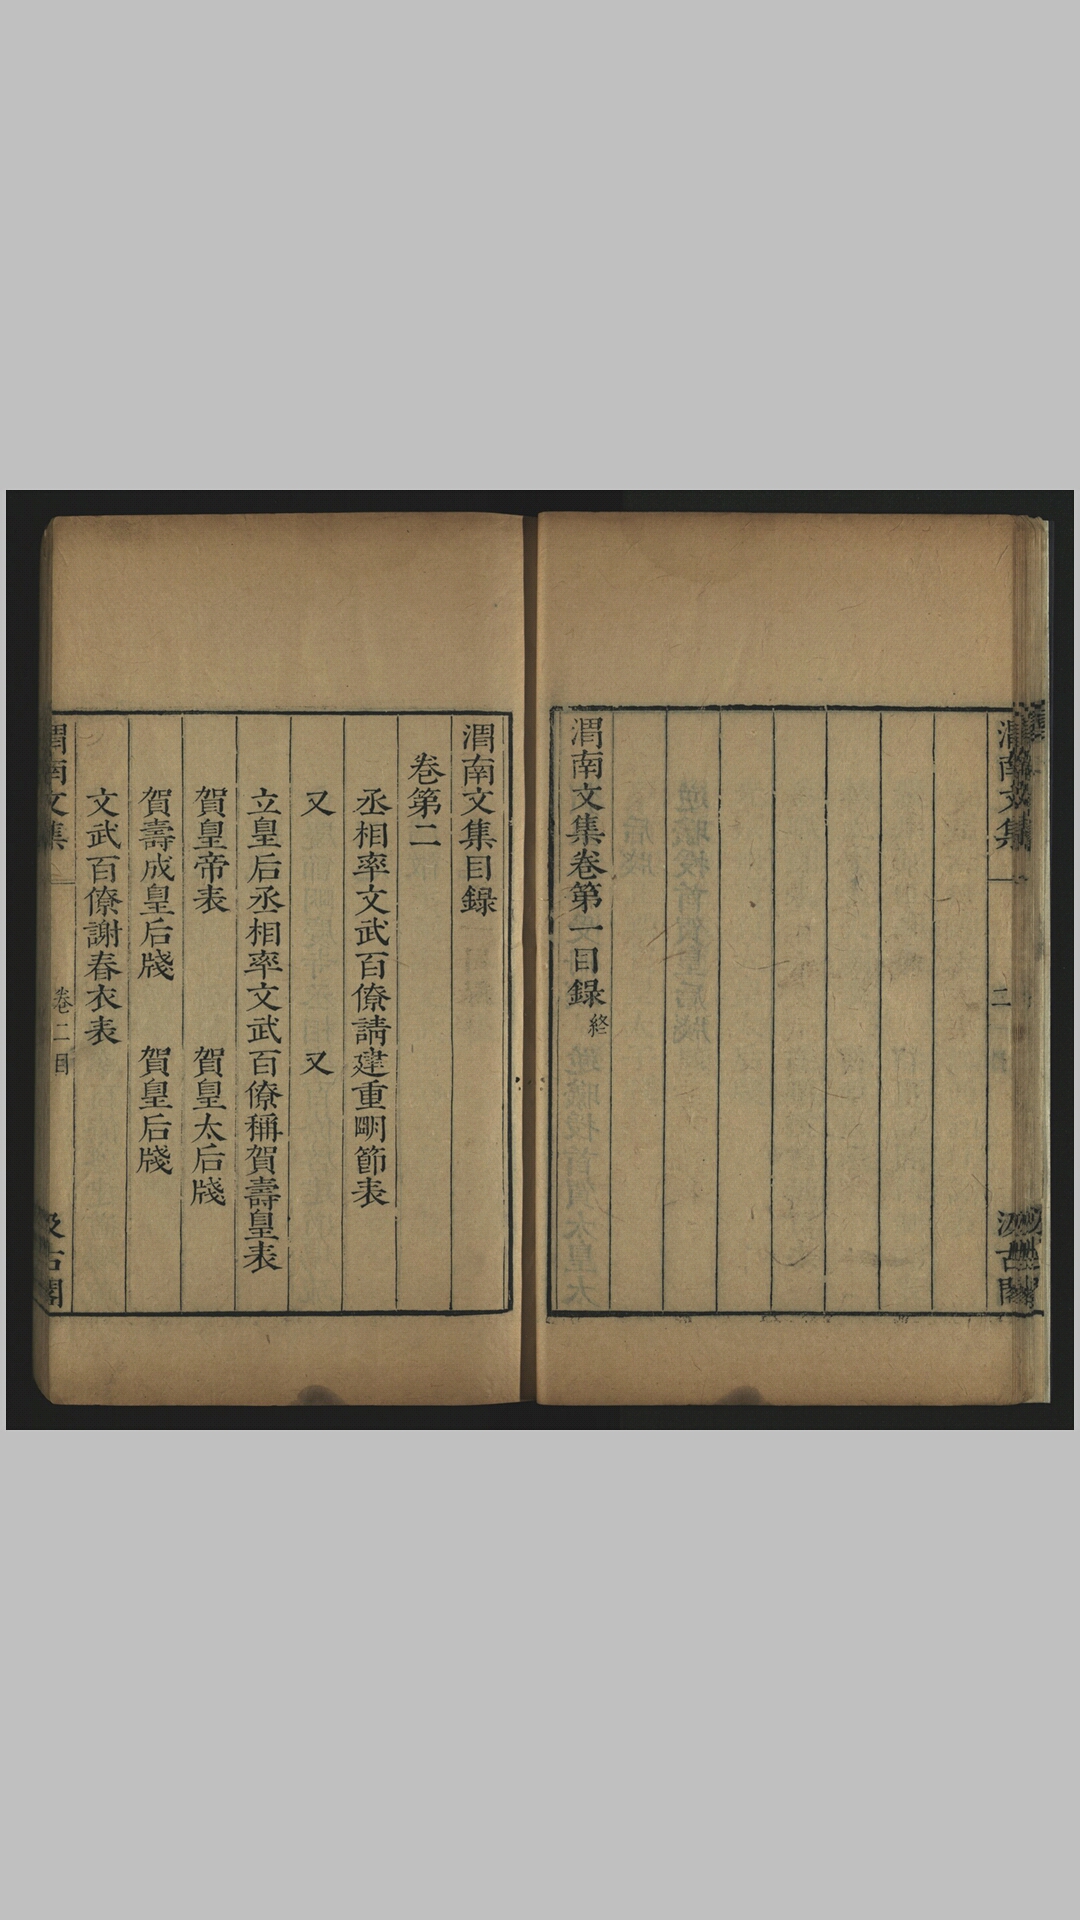 渭南文集
二
汲古閣
渭南文集卷第一目録終
渭南文集目録
卷第二
丞相率文武百僚請建重明節表
又　又
立皇后丞相率文武百僚稱賀壽皇表
賀皇帝表　賀皇太后牋
賀壽成皇后牋　賀皇后牋
文武百僚謝春衣表
渭南文集
卷二目
汲古閣